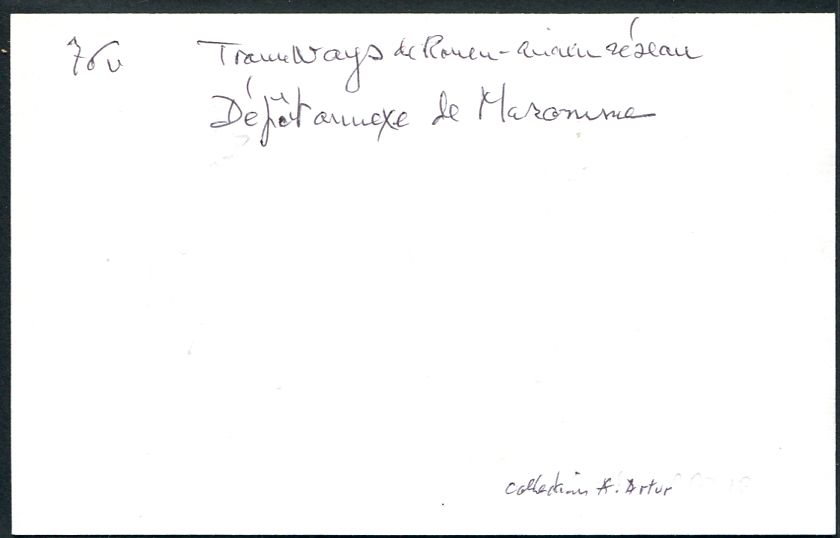 76v Tramways de Rouen - ancien réseau
Dépôt annexe de Maromme
collection A. Artur